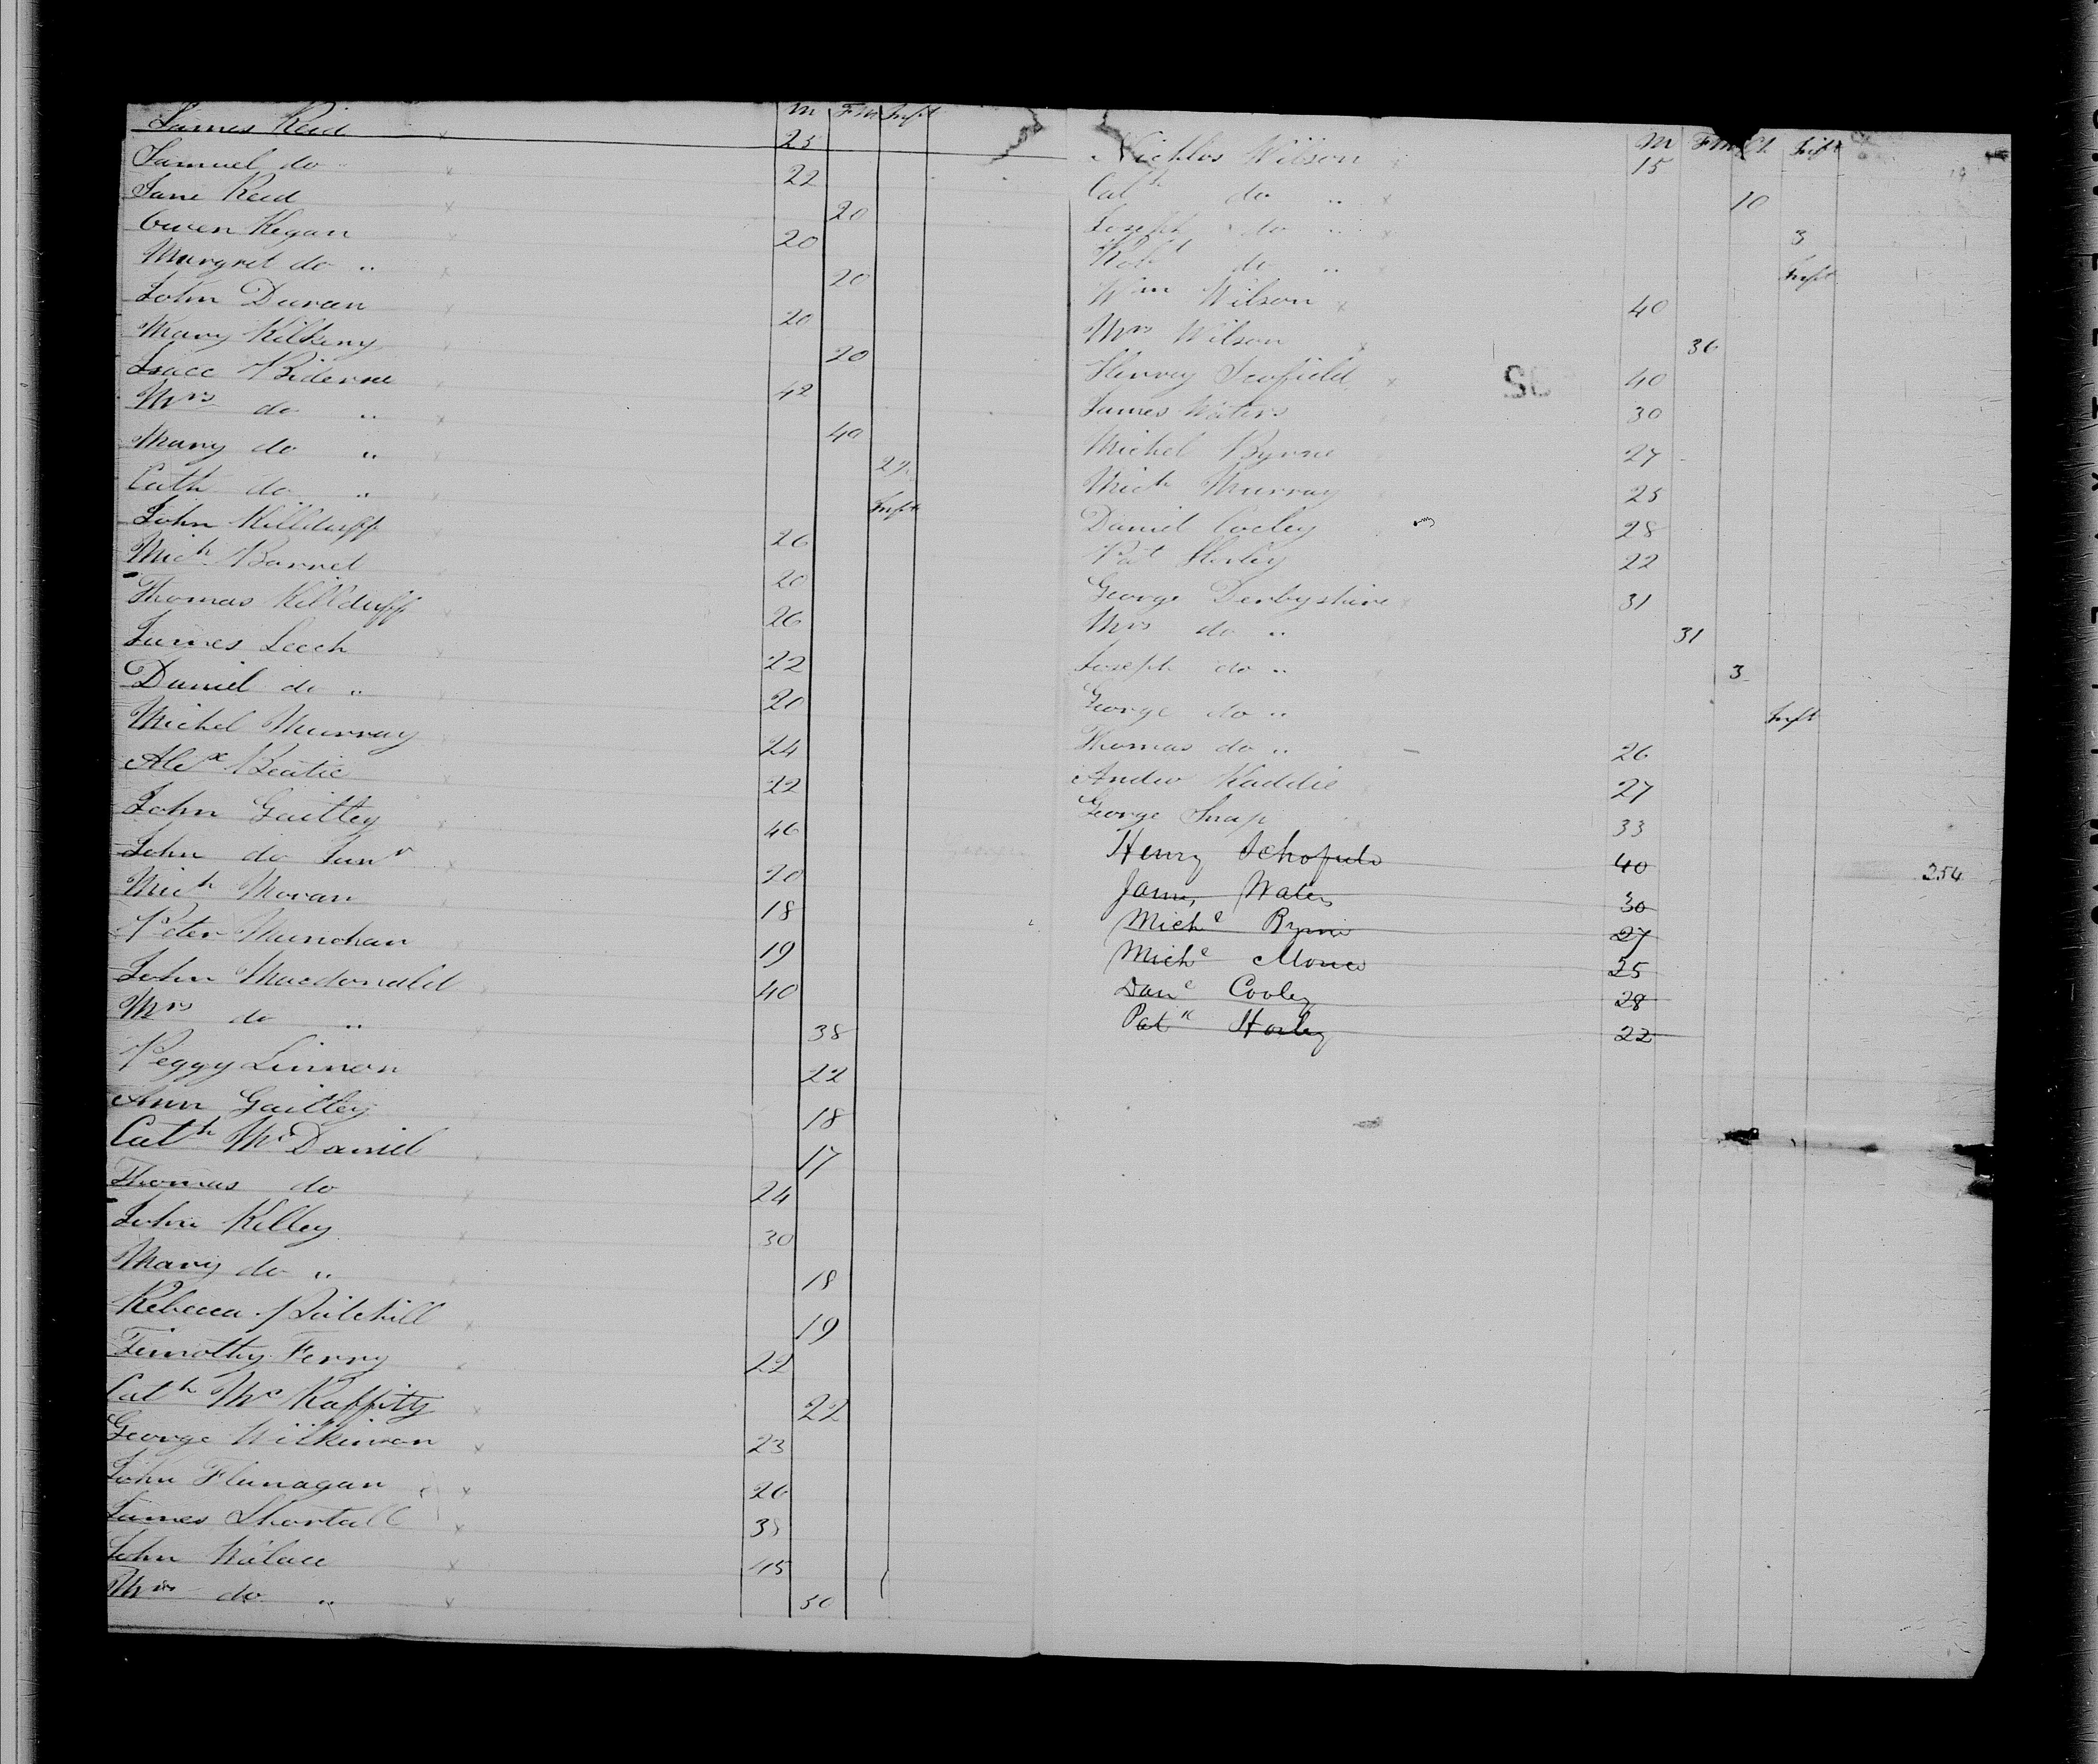 M Fm Inft
James Reid 25
Samuel do 22
Jane Reid 20
Owen Kegan 20
Margret do 20
John Duran 20
Mary Kilkeny 20
Isacc 42
Mrs do 40
Mary do
Cath do Inft
John Killduff 26
Mich Barret 20
Thomas Killduff 26
James Leech 22
Daniel do 20
Michel Murray 24
Alex Beatie 22
John Gaitley 46
John do Junr 20
Mich Moran 18
Peter 19
John Macdonald 40
Mrs do 38
Peggy Linnon 22
Ann Gaitley 18
Cath McDaniel 17
Thomas do 24
John Killey 30
Mary do 18
Rebecca 19
Timothy Ferry 22
Cath Mc 22
George Wilkinson 23
John Flanagan 26
James Shortall 38
John Walace 45
Mrs do 30
M Fm Ch Inft
Nichlos Wilson 15
Cath do 10
Joseph do 3
Robt do Inft
Wm Wilson 40
Mrs Wilson 36
Henry Scofield 40
James Waters 30
Michel Byrne 27
Mich Murray 25
Daniel Cooley 28
Pat 22
George Derbyshire 31
Mrs do 31
Joseph do 3
George do Inft
Thomas do 26
Andw Kaddie 27
George Snap 33
Henry Schofield 40
James Waters 30
Michl Byrne 27
Michl 25
Danl Cooley 28
Patk 22
254